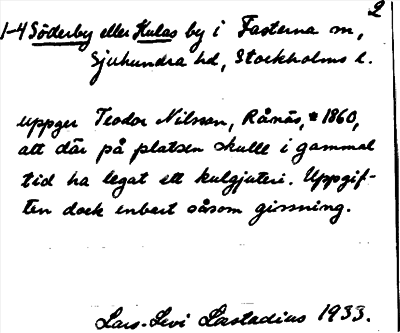 2
1-4 Söderby eller Kulas by i Fasterna sn,
Sjuhundra hd, Stockholms l.
uppger Teodor Nilsson, Rånäs, * 1860,
att där på platsen skulle i gammal
tid ha legat ett kulgjuteri. Uppgif-
ten dock enbart såsom gissning.
Lars-Levi Læstadius 1933.